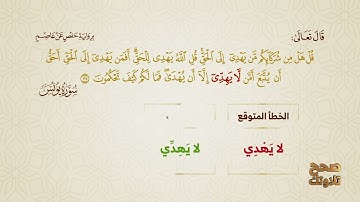 قَالَ تَعَالَىٰ:
بِرِوَايَةِ حَفْصٍ عَنْ عَاصِمٍ
قُلْ هَلْ مِن شُرَكَآئِكُم مَّن يَهْدِىٓ إِلَى ٱلْحَقِّ قُلِ ٱللَّهُ يَهْدِى لِلْحَقِّ أَفَمَن يَهْدِىٓ إِلَى ٱلْحَقِّ أَحَقُّ
أَن يُتَّبَعَ أَمَّن لَّا يَهِدِّىٓ إِلَّآ أَن يُهْدَىٰ فَمَا لَكُمْ كَيْفَ تَحْكُمُونَ ٣٥
سُورَةُ يُونُسَ
الخطأ المتوقع
لا يَهْدِي
لا يَهِدِّي
صحح
تلاوتك